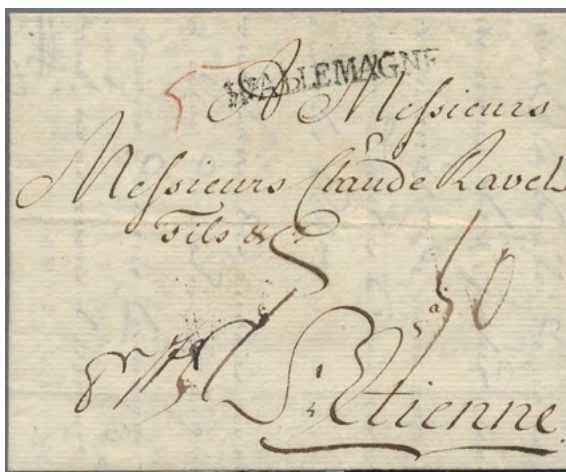 D'ALLEMAGNE
A Messieurs
Messieurs Claude Ravel
Fils & C.
à
St. Etienne.